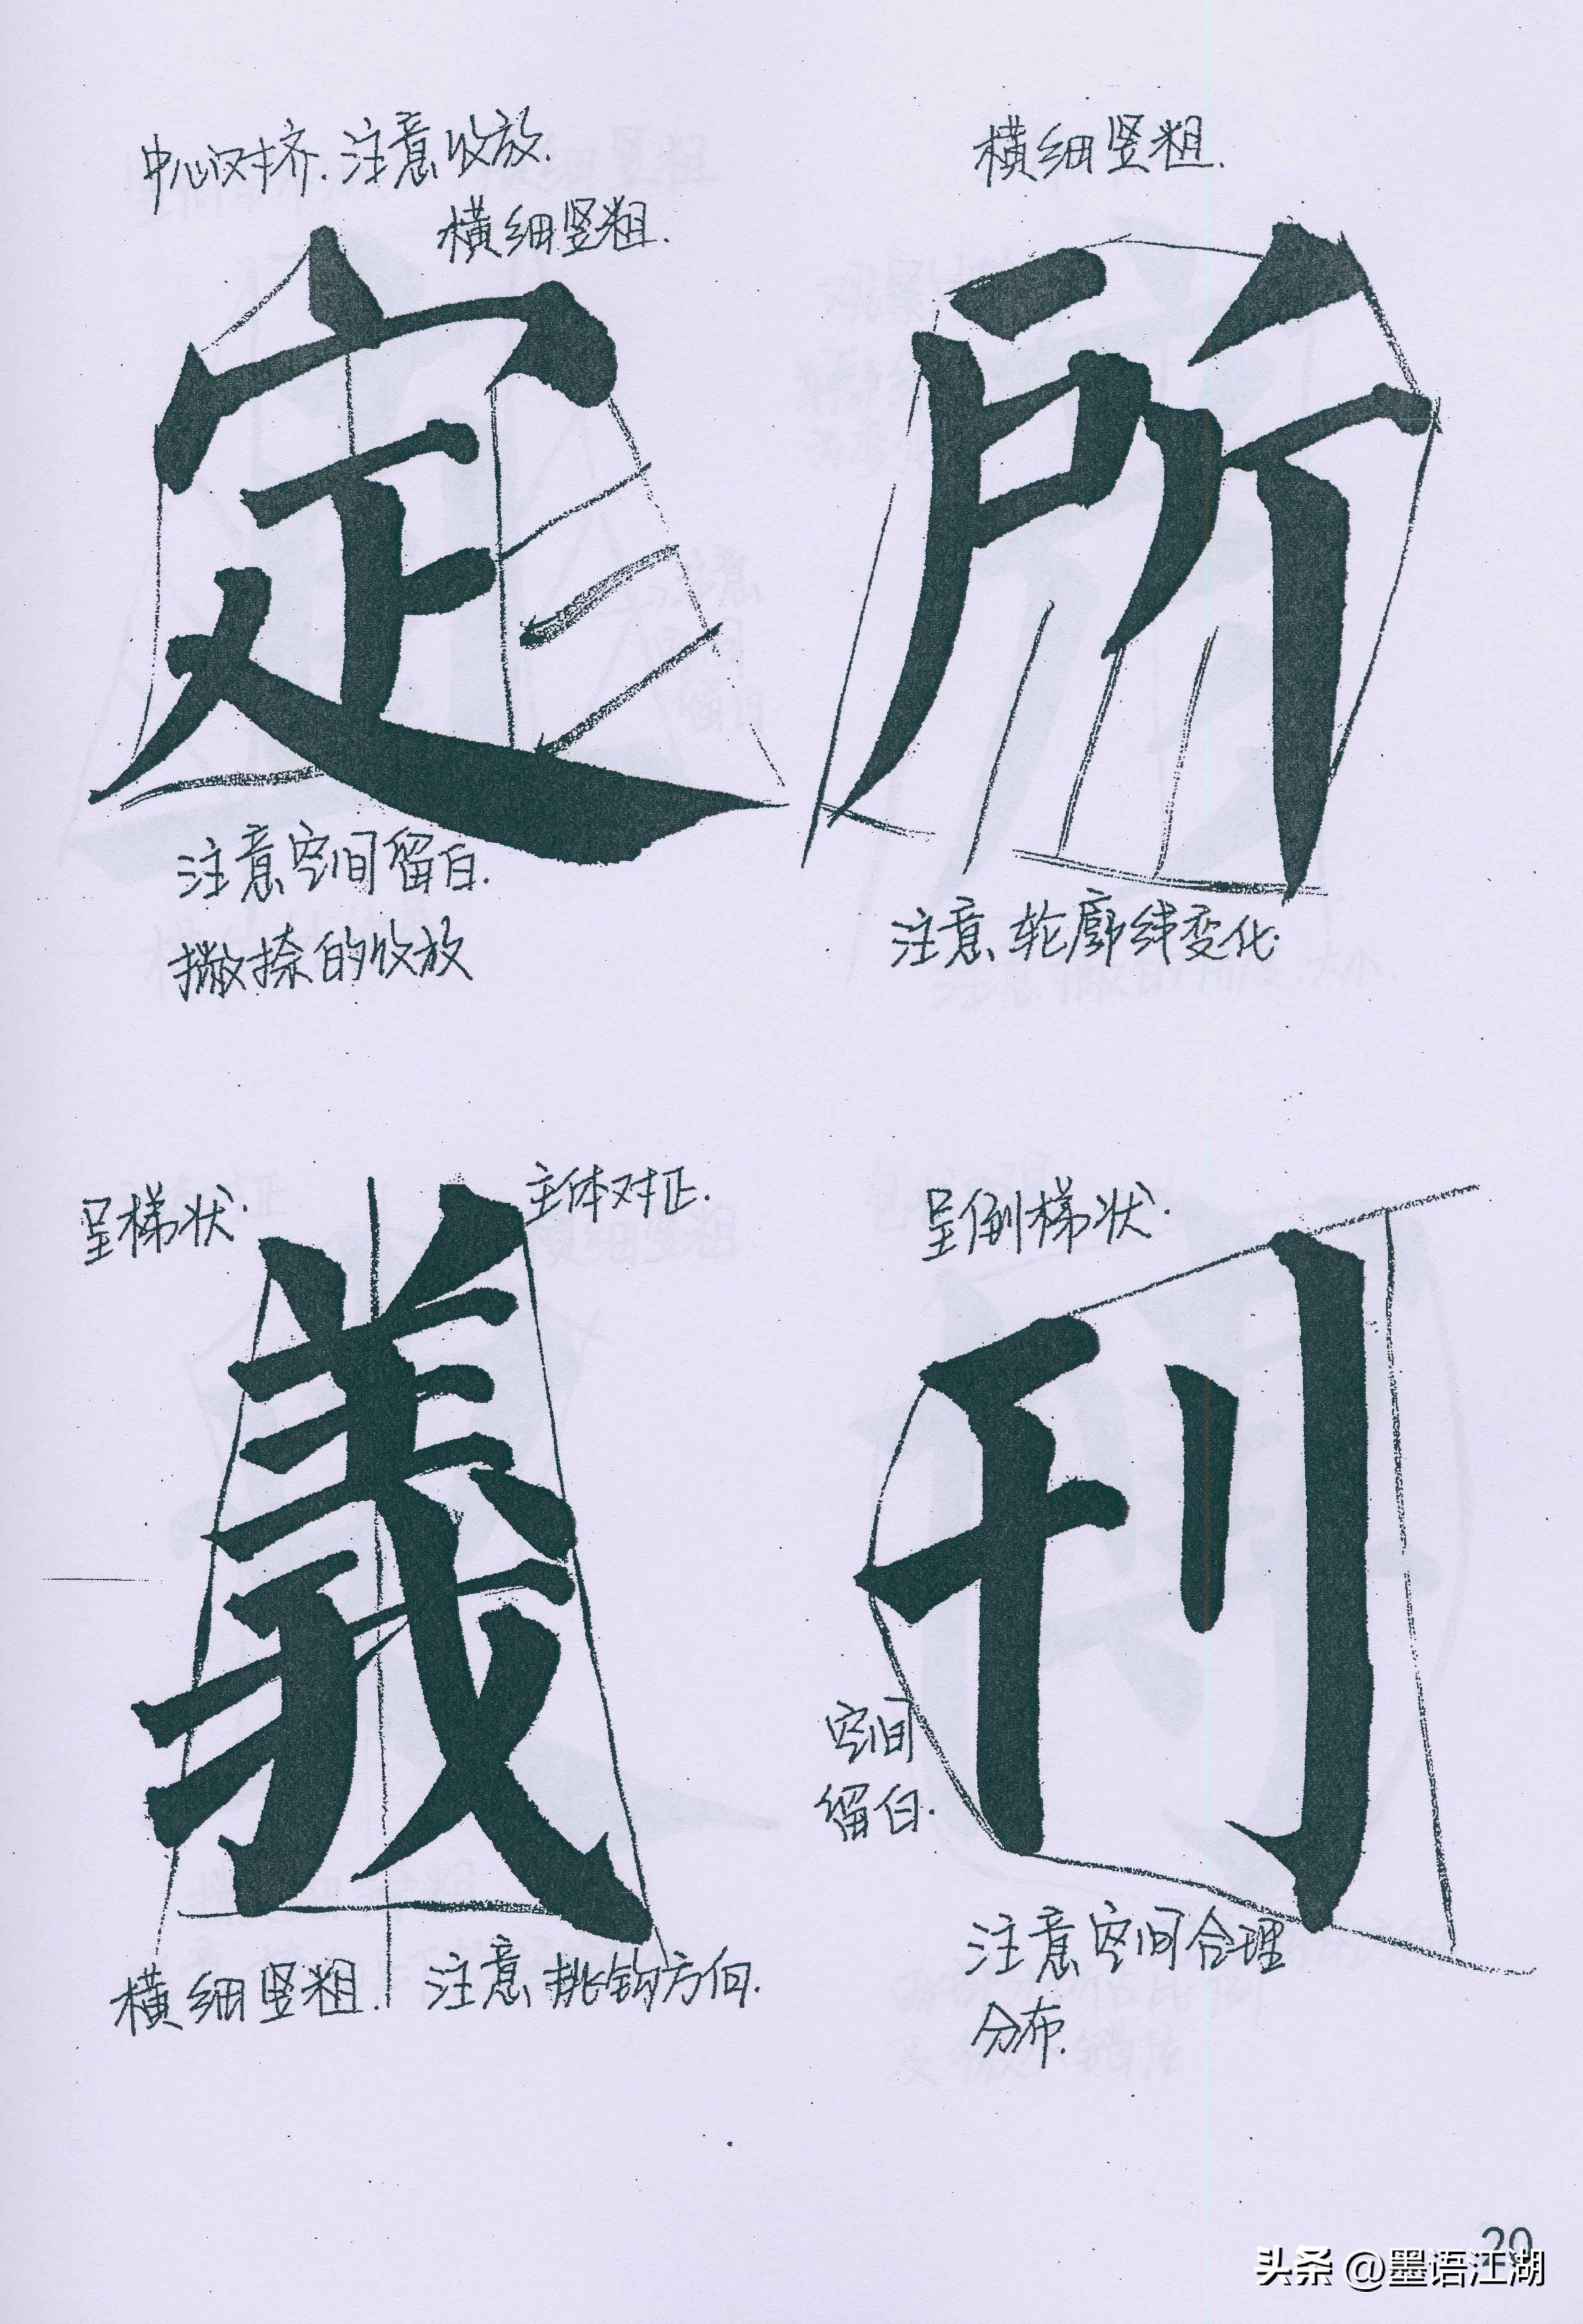 中心对齐.注意收放.
横细竖粗.
定
注意空间留白.
撇捺的收放
横细竖粗.
所
注意轮廓线变化.
呈梯状.
主体对正.
義
横细竖粗.
注意挑钩方向.
呈倒梯状.
刊
空间
留白.
注意空间合理
分布.
20
头条 @墨语江湖